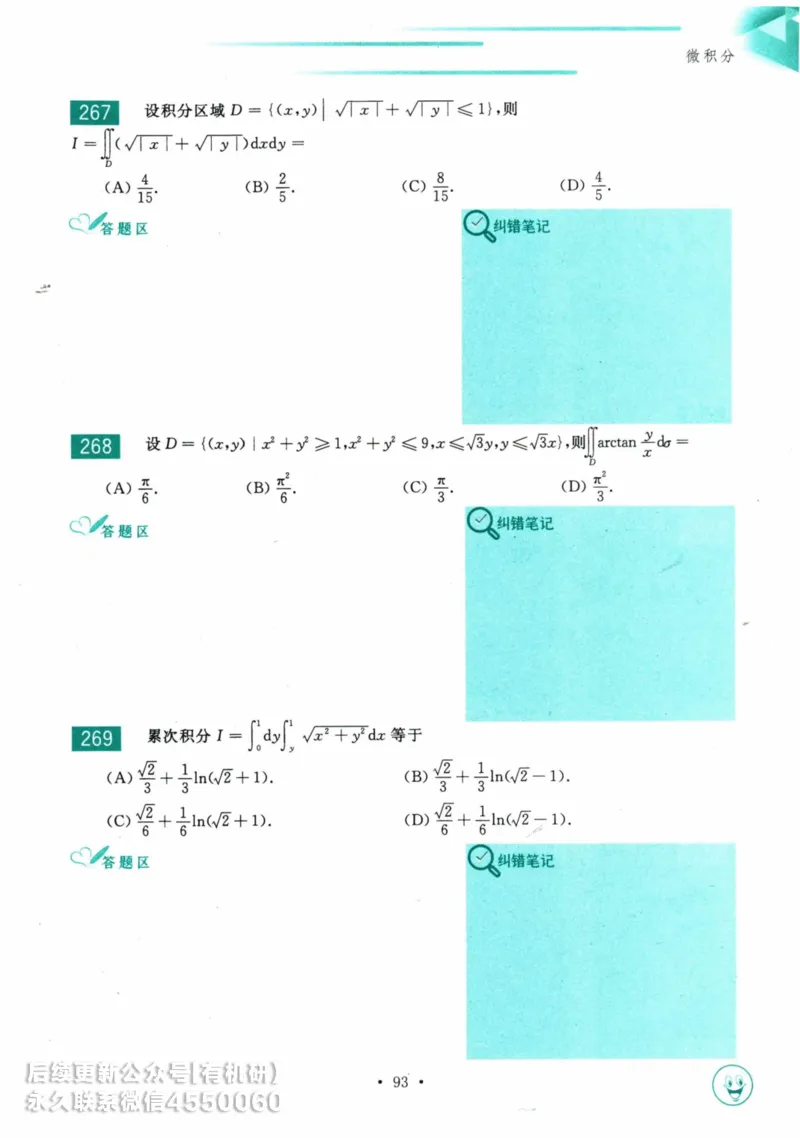 微积分
267 设积分区域 D = {(x,y)| √|x| + √|y| ≤ 1},则
I = ∬_D (√|x| + √|y|)dxdy =
(A) 4/15. (B) 2/5. (C) 8/15. (D) 4/5.
答题区 纠错笔记
268 设 D = {(x,y) | x² + y² ≥ 1, x² + y² ≤ 9, x ≤ √3y, y ≤ √3x},则∬_D arctan y/x dσ =
(A) π/6. (B) π²/6. (C) π/3. (D) π²/3.
答题区 纠错笔记
269 累次积分 I = ∫_0^1 dy∫_y^1 √(x² + y²)dx 等于
(A) √2/3 + 1/3 ln(√2 + 1). (B) √2/3 + 1/3 ln(√2 − 1).
(C) √2/6 + 1/6 ln(√2 + 1). (D) √2/6 + 1/6 ln(√2 − 1).
答题区 纠错笔记
• 93 •
后续更新公众号[有机研)
永久联系微信4550060